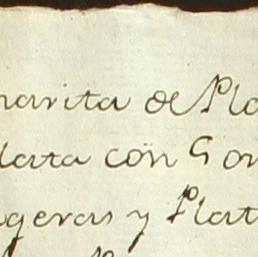 harita de Pla
lata con Gor
geras y Plat